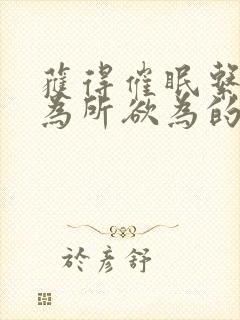 獲得催眠繫
為所欲為的
於彥舒